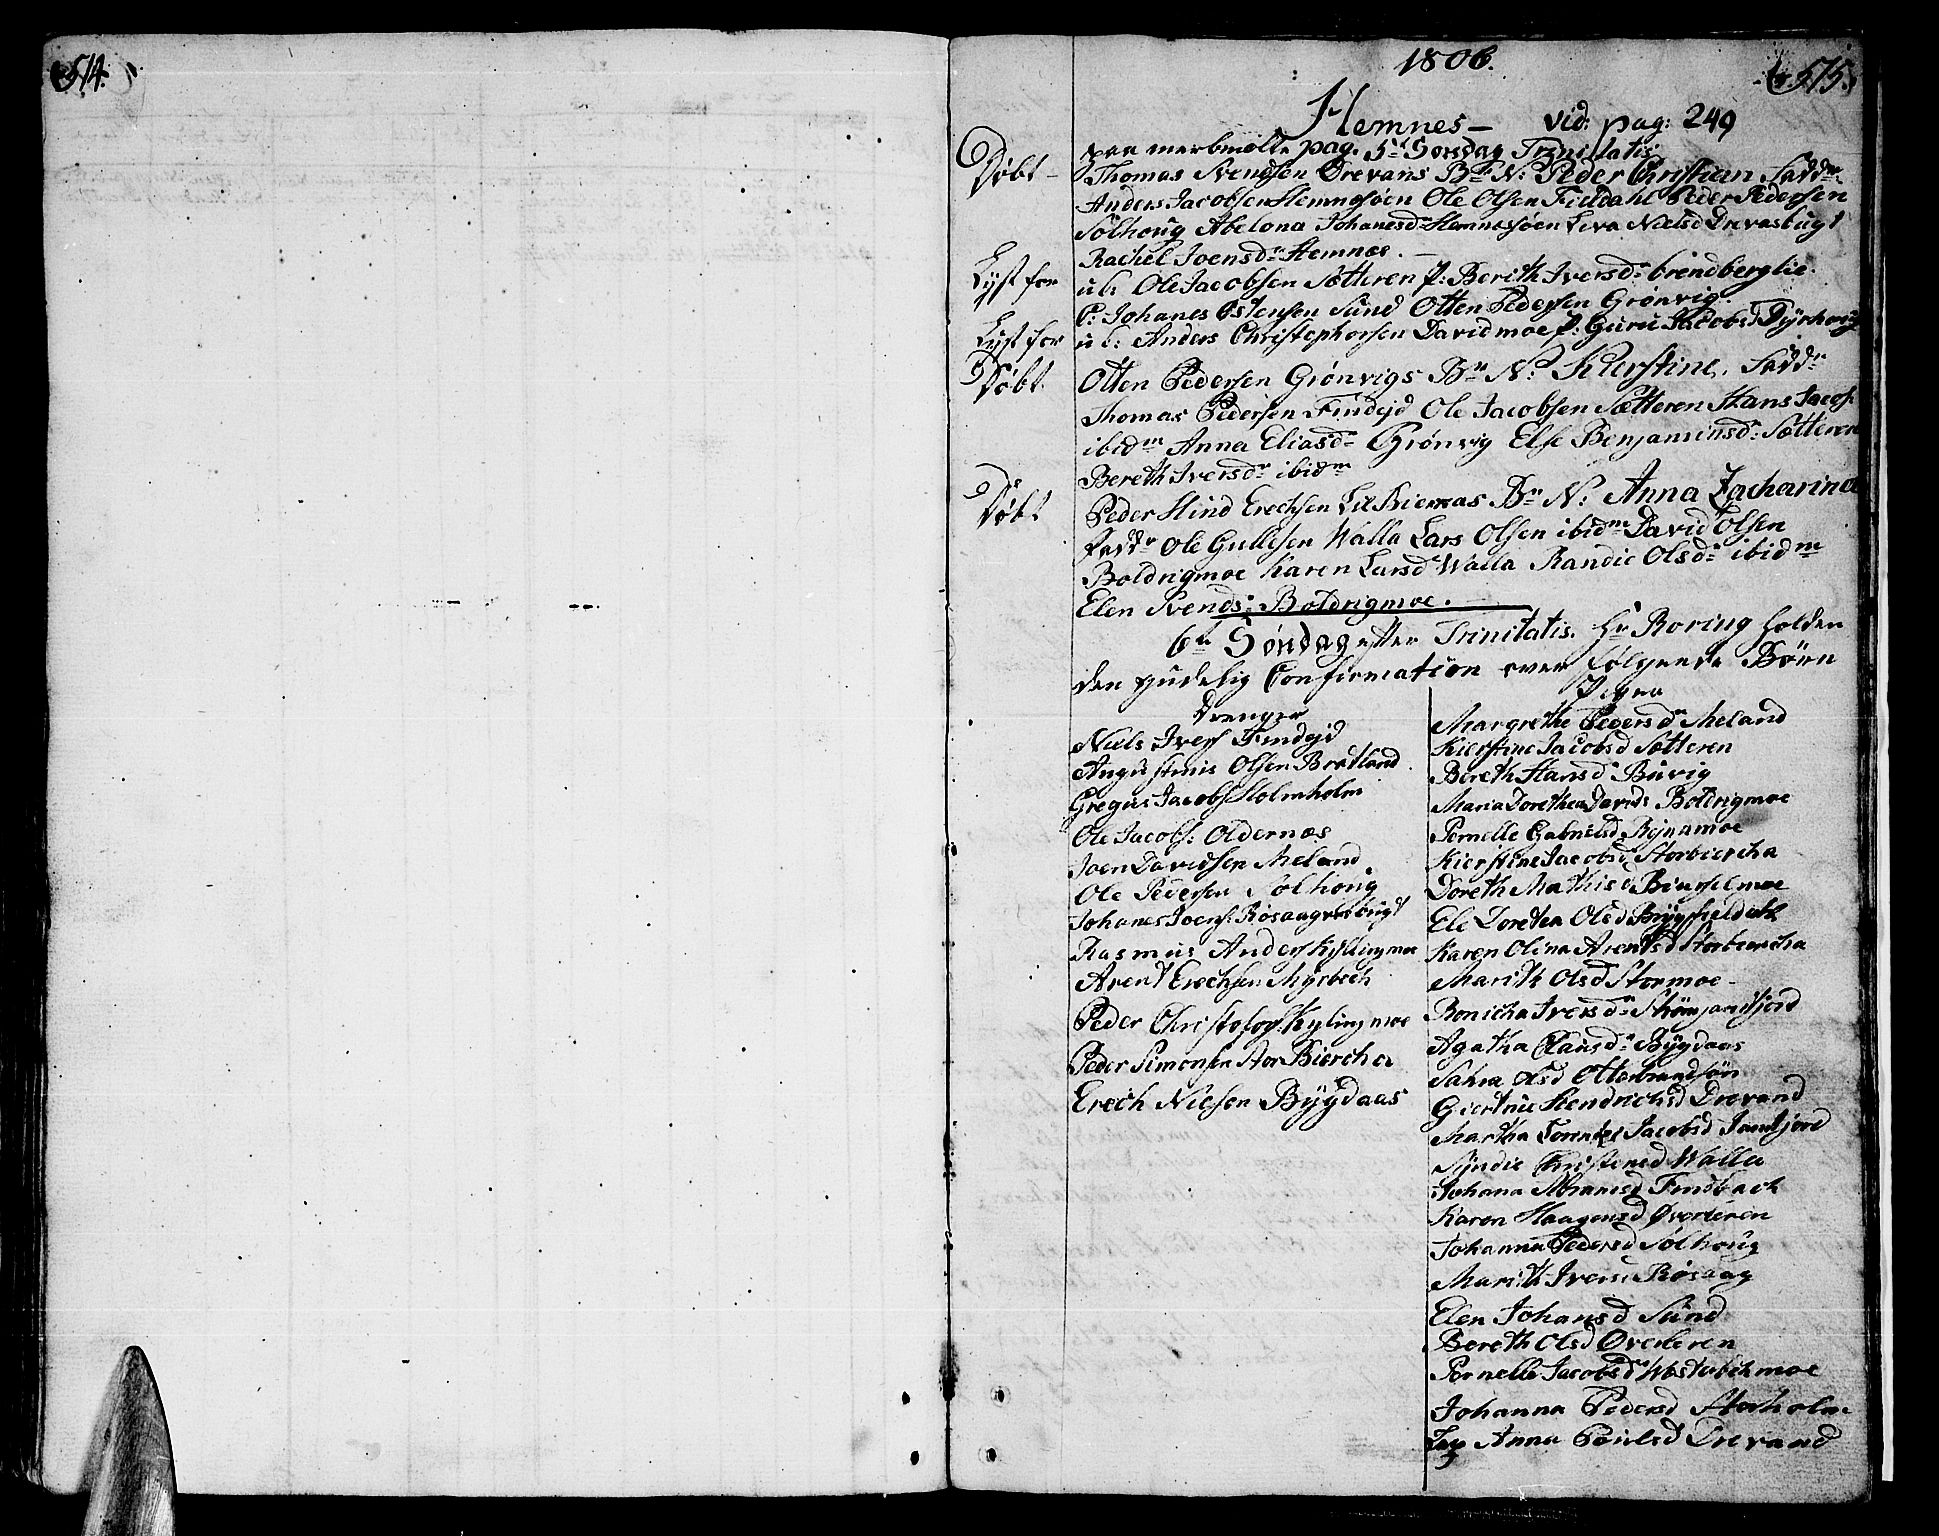 514.
1806.
575.
Hemnes — vid: pag: 249
paa merbmelte pag. 5t Sønsdag Trinitatis
Døbt — Thomas Svendsen Drevans Bn N: Peder Christian Fadd
Anders Jacobsen Hemnessøen Ole Olsen Fieldahl Peder Pedersen
Solhoug Abelona Johanesd Hemnessøen Siva Nielsd Drevasbugt
Rachel Joensdr Hemnæs. —
Lyst for ubi Ole Jacobsen Sætteren P: Berith Iversd: brendberglie.
C: Johanes Østensen Sund Otten Pedersen Grønvig.
Lyst for ubi Anders Christophorsen Davidmoe P: Guru Jacobsd Dyrhoug
Døbt Otten Pedersen Grønvigs Bn N: Kierstine. Fadd
Thomas Pedersen Findejd Ole Jacobsen Sætteren Hans Jacobs:
ibidm Anna Eliasd Grønvig Else Benjaminsd: Sætteren
Bereth Iversd ibidm
Døbt Peder Hind Erechsen Bn N: Anna Zacharina
Fadd Ole Gullesen Walla Lars Olsen ibidm David Olsen
Boldrigmoe Karen Larsd Walla Randie Olsd: ibidm
Elen Svends: Boldrigmoe.
6te Søndag efter Trinitatis. Hr Roring holden
den gudelig Confirmation over følgende Børn
Drenger
Niels Ivers Findejd
Angustinus Olsen Bratland
Gregus Jacobs Holmholm
Ole Jacobs: Oldernæs
Joen Davidsen Meland
Ole Pedersen Solhoug
Johanes Joens: Røsaagresbugt
Rasmus Anders Kyllingmoe
Arent Erechsen Myrbech
Peder Christofos: Kylingmoe
Peder Simonsen Stor Biercha
Erech Nielsen Bygdaas
Piger
Margrethe Pedersd Meland
Kierstine Jacobsd Sætteren
Bereth Hansd: Buvig
Maria Dorethea Davids Boldrigmoe
Pernelle Gabrielsd Ryinamoe
Kierstine Jacobsd Storbiercha
Doreth Mathisd Biurselmoe
Ele Dorethea Olsd
Karen Olina Arentsd Storbiercha
Marith Olsd Stormoe
Ronicha Iversd: Strømjamfjord
Agatha Clausd: Bygdaas
Sahra Olsd Otterbrandsøn
Giertrue Hendrichsd Drevand
Martha Jacobsd Jamfjord
Syndie Christensd Walla
Johana Abramsd Findbach
Karen Haagensd Øverleren
Johanna Pedersd Solhoug
Marith Ivers: Røsaag
Elen Johansd Sund
Bereth Olsd Øverleren
Pernelle Jacobsd Westerbechmoe
Johanna Pedersd Storholm
Anna Poulsd Drevand